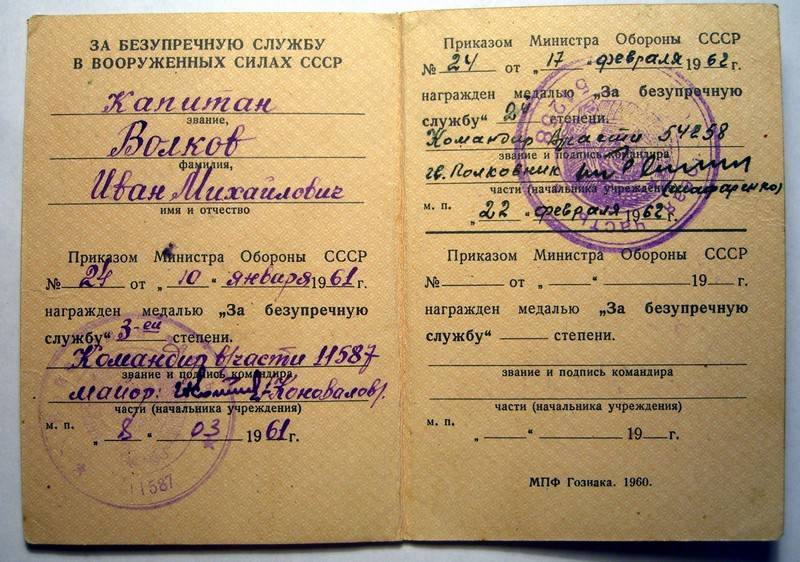 ЗА БЕЗУПРЕЧНУЮ СЛУЖБУ
В ВООРУЖЕННЫХ СИЛАХ СССР
Капитан
звание,
Волков
фамилия,
Иван Михайлович
имя и отчество
Приказом Министра Обороны СССР
№ 24 от „ 10 “ января 1961 г.
награжден медалью „За безупречную
службу“ 3-ей степени.
Командир в/части 11587
звание и подпись командира
майор: Коновалов
части (начальника учреждения)
м. п.
„ 8 “ 03 1961 г.
11587
Приказом Министра Обороны СССР
№ 24 от „ 17 “ февраля 1962 г.
награжден медалью „За безупречную
службу“ степени.
Командир части 54258
звание и подпись командира
гв. Полковник
части (начальника учреждения)
(Шафаренко)
м. п.
„ 22 “ февраля 1962 г.
Приказом Министра Обороны СССР
№ от „ “ 19 г.
награжден медалью „За безупречную
службу“ степени.
звание и подпись командира
части (начальника учреждения)
м. п.
„ “ 19 г.
МПФ Гознака. 1960.